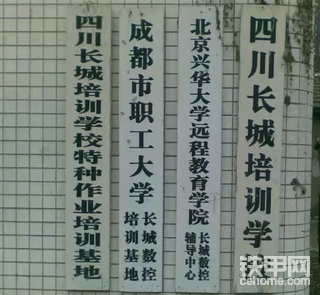 四川长城培训学
北京兴华大学远程教育学院
长城数控
辅导中心
成都市职工大学
长城数控
培训基地
四川长城培训学校特种作业培训基地
铁甲网
cehome.com